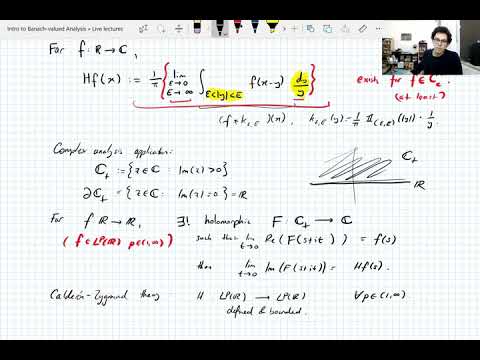 Intro to Banach-valued Analysis » Live lectures
For f: ℝ → ℂ,
Hf(x) := 1/π { lim ε→0 E→∞ ∫ ε<|y|<E f(x-y) dy/y } exists for f ∈ C_c^∞ (at least)
(f * k_{ε,E})(x), k_{ε,E}(y) = 1/π 𝟙_{(ε,E)}(|y|) · 1/y
Complex analysis application:
ℂ₊ := {z ∈ ℂ : Im(z) > 0}
∂ℂ₊ = {z ∈ ℂ : Im(z) = 0} = ℝ
ℂ₊
ℝ
For f: ℝ → ℝ, ∃! holomorphic F: ℂ₊ → ℂ
(f ∈ L^p(ℝ) p ∈ (1,∞)) such that lim t→0 Re(F(s+it)) = f(s)
then lim t→0 Im(F(s+it)) = Hf(s).
Calderón-Zygmund theory: H L^p(ℝ) → L^p(ℝ) ∀p ∈ (1,∞)
defined & bounded.